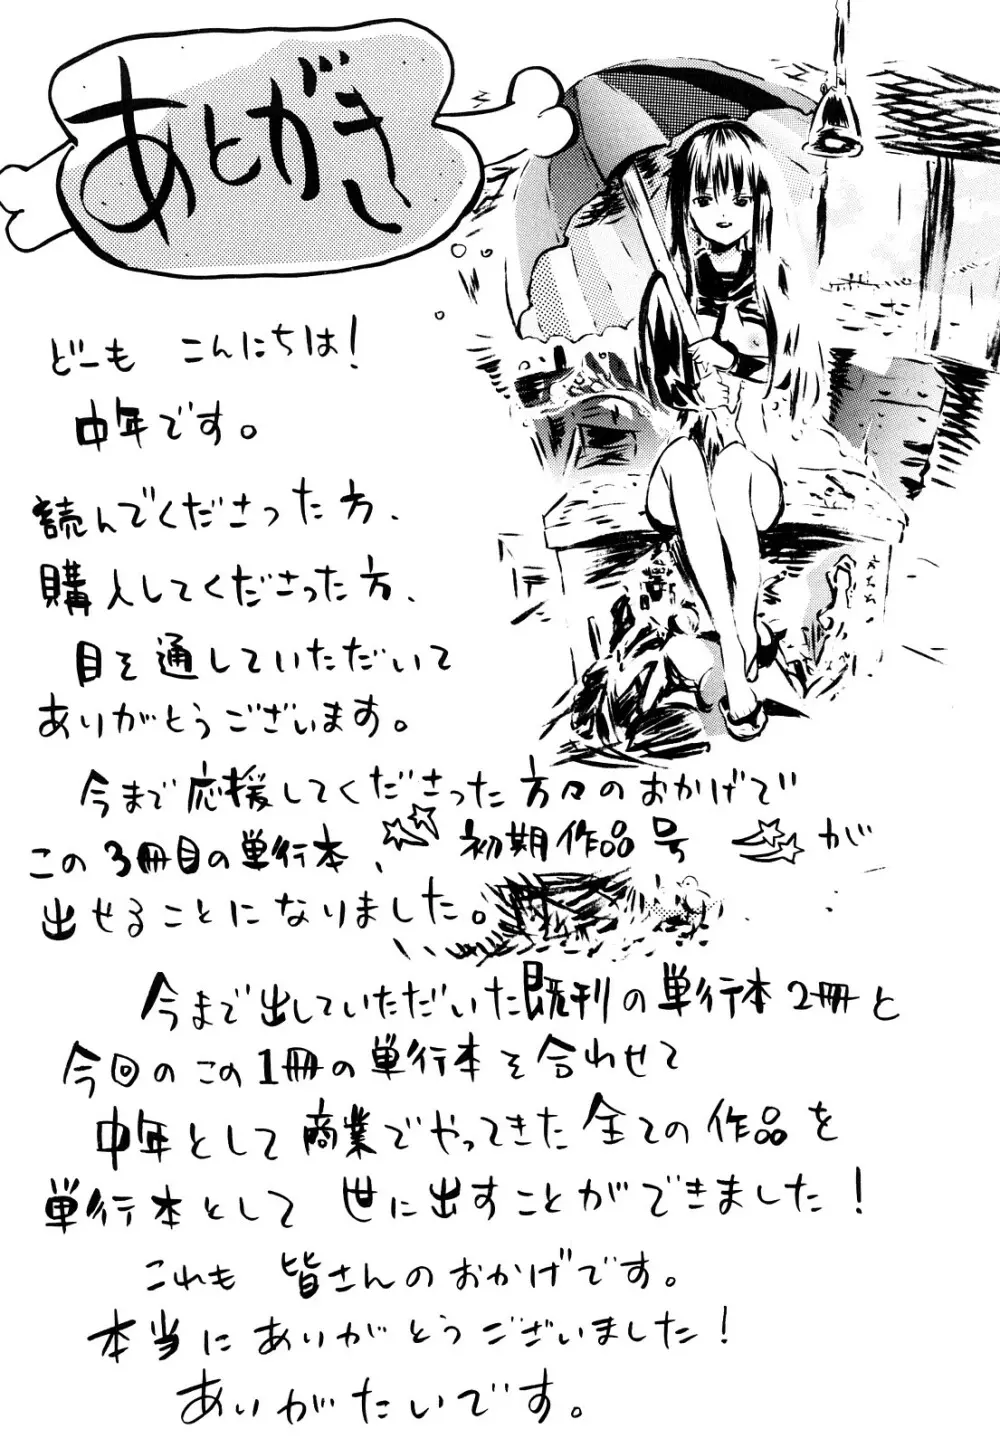 あとがき
どーも こんにちは!
中年です。
読んでくださった方、
購入してくださった方、
目を通していただいて
ありがとうございます。
今まで応援してくださった方々のおかげで
この3冊目の単行本、初期作品号 が
出せることになりました。
今まで出していただいた既刊の単行本2冊と
今回のこの1冊の単行本を合わせて
中年として商業でやってきた全ての作品を
単行本として 世に出すことができました!
これも 皆さんのおかげです。
本当にありがとうございました!
ありがたいです。